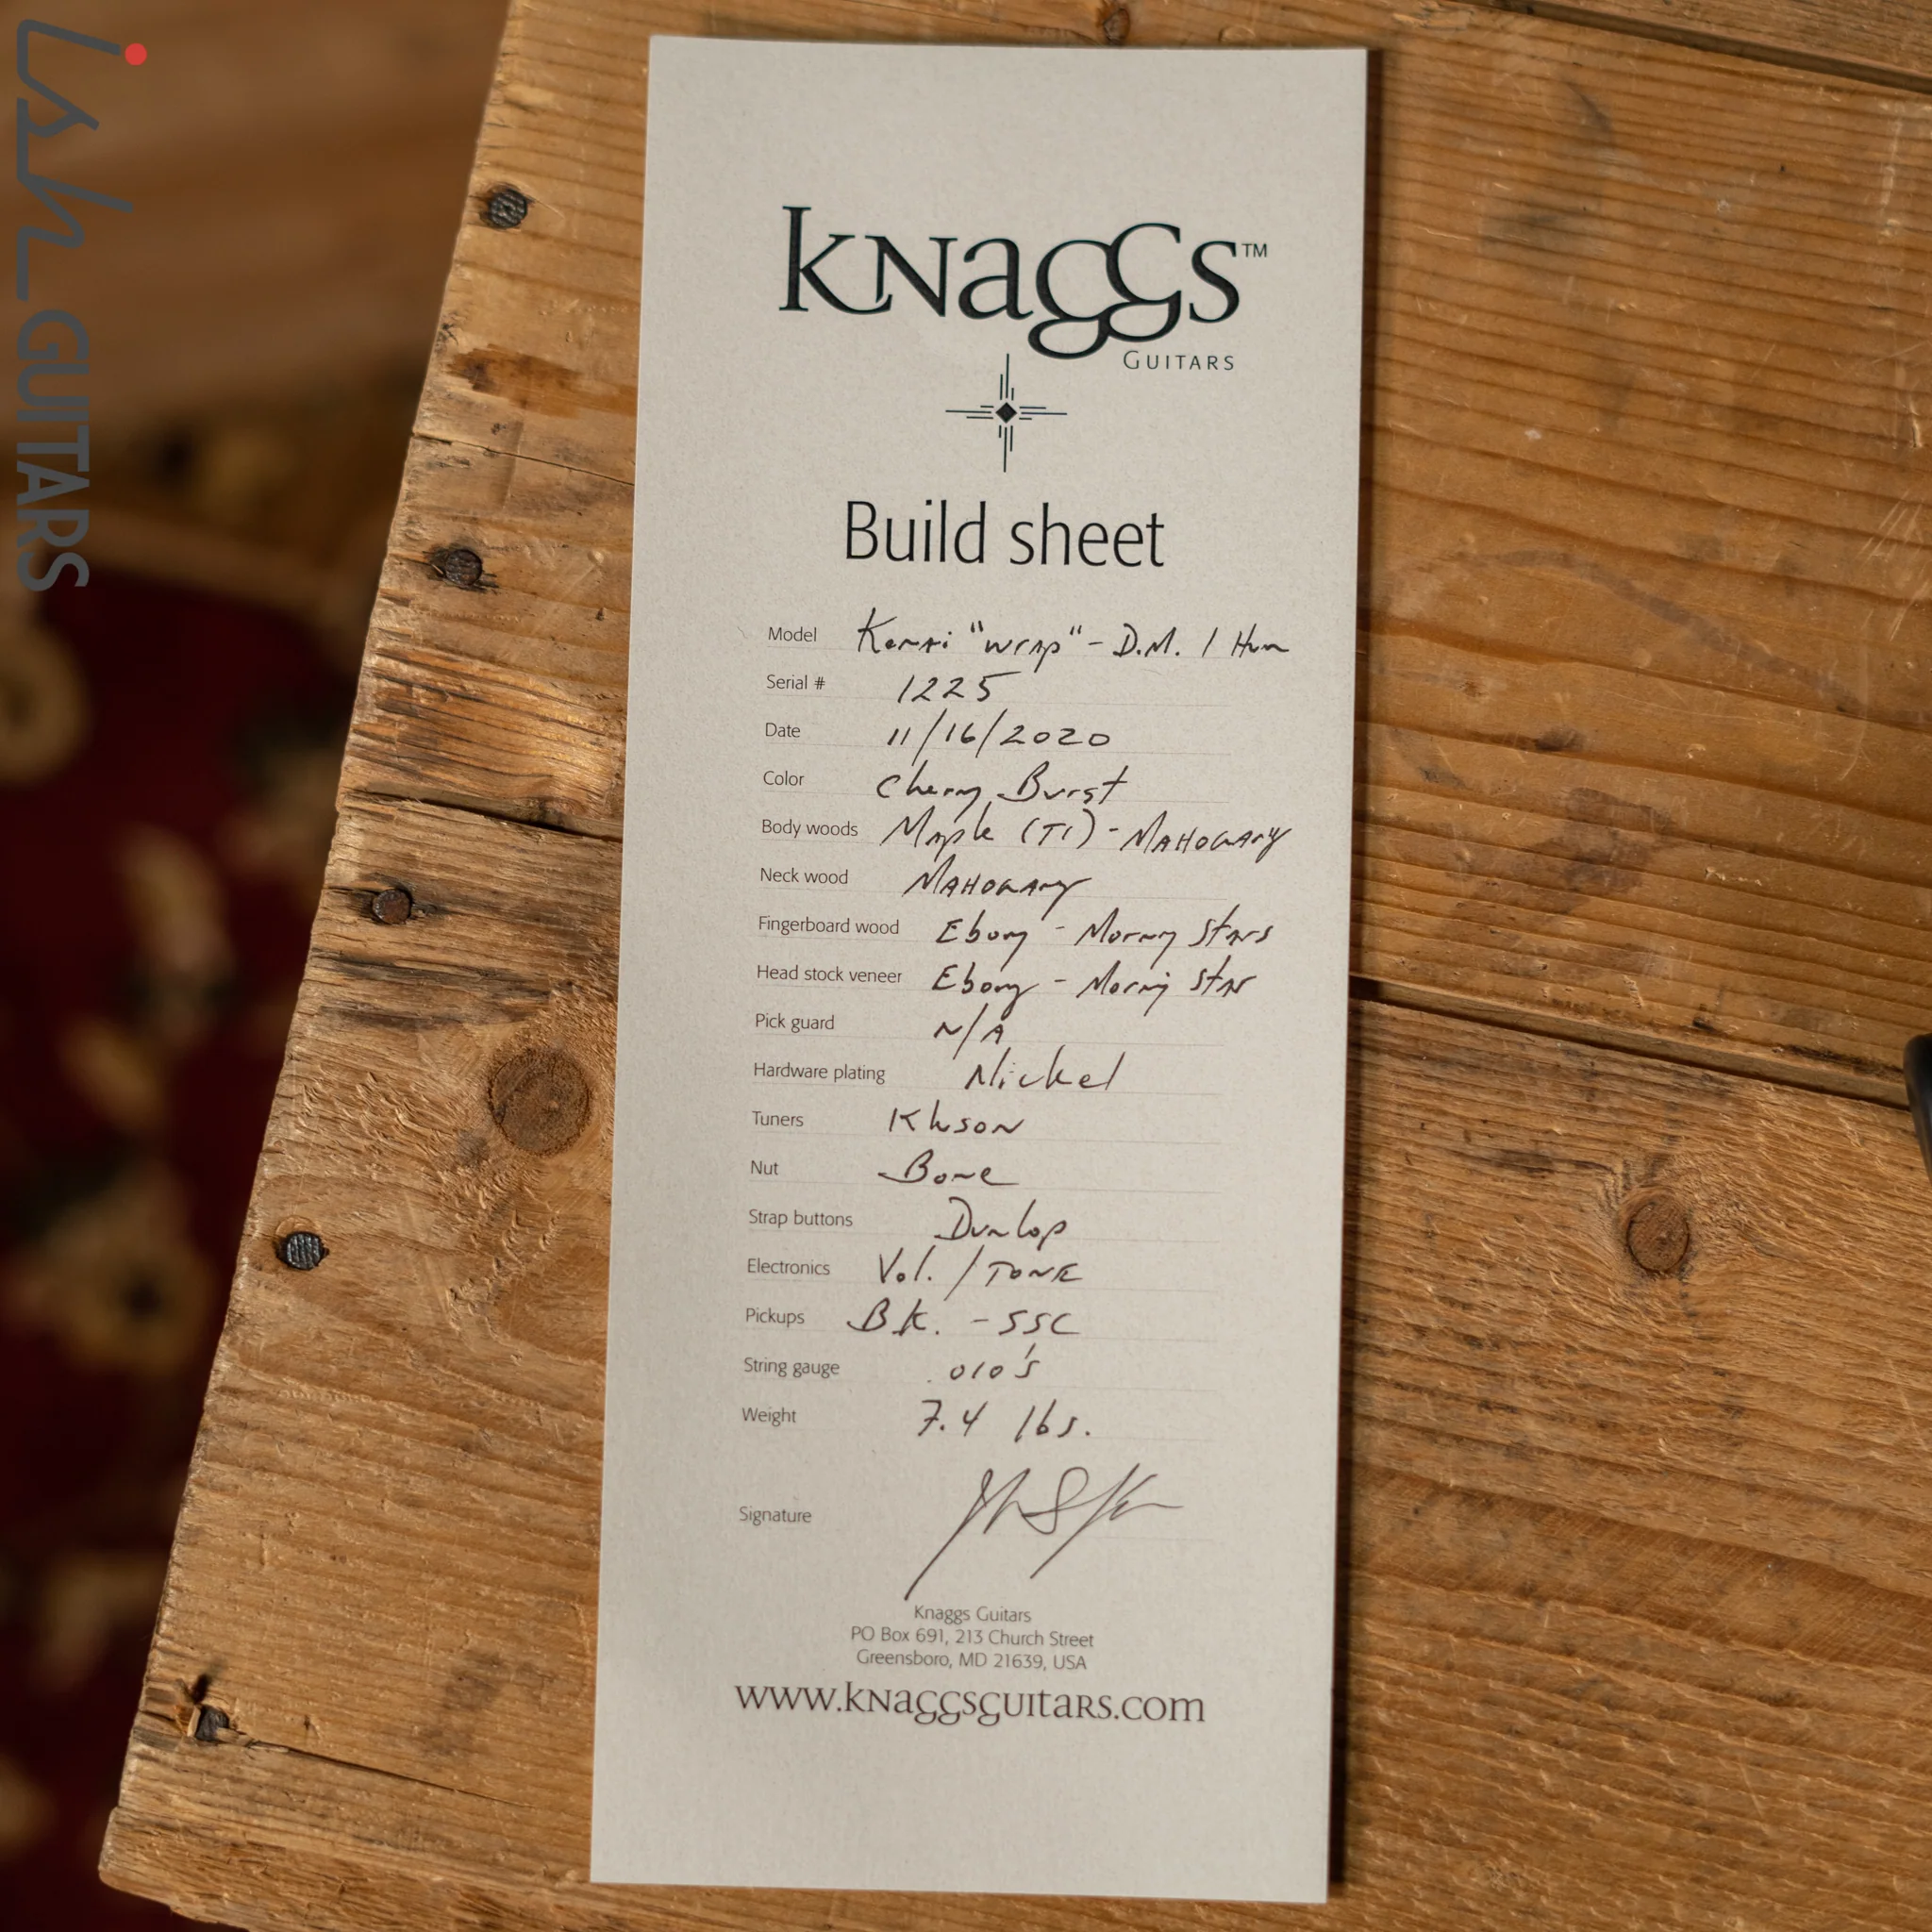 ish GUITARS
Knaggs™
GUITARS
Build sheet
Model Kenai "wrap" - D.M. 1 Hum
Serial # 1225
Date 11/16/2020
Color Cherry Burst
Body woods Maple (T1) - MAHOGANY
Neck wood MAHOGANY
Fingerboard wood Ebony - Morning Stars
Head stock veneer Ebony - Morning Star
Pick guard N/A
Hardware plating Nickel
Tuners Kluson
Nut Bone
Strap buttons Dunlop
Electronics Vol. / TONE
Pickups B.K. - SSC
String gauge .010's
Weight 7.4 lbs.
Signature
Knaggs Guitars
PO Box 691, 213 Church Street
Greensboro, MD 21639, USA
www.knaggsguitars.com